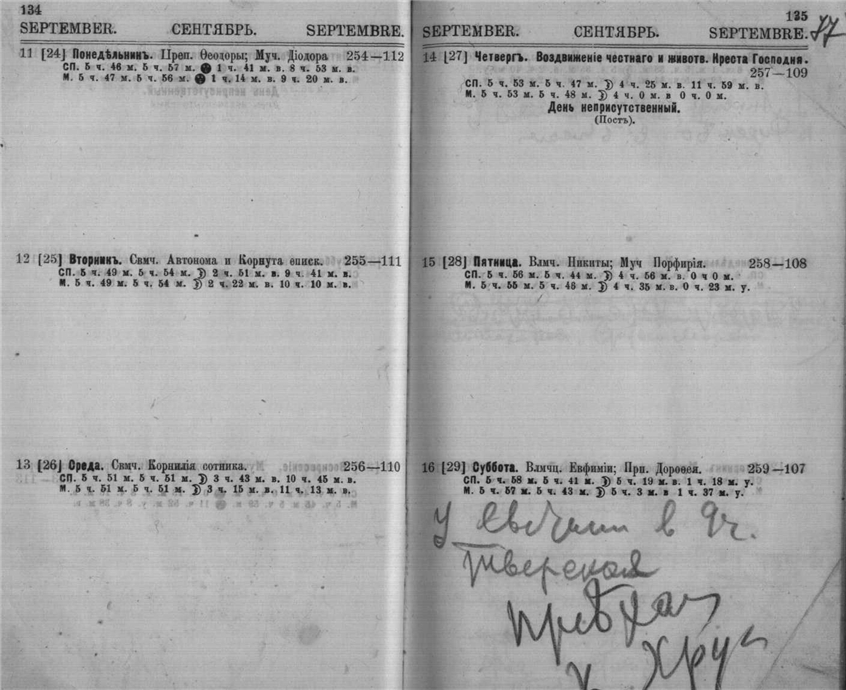 134
SEPTEMBER. СЕНТЯБРЬ. SEPTEMBRE.
11 [24] Понедѣльникъ. Преп. Ѳеодоры; Муч. Діодора 254—112
СП. 5 ч. 46 м. 5 ч. 57 м. 1 ч. 41 м. в. 8 ч. 53 м. в.
М. 5 ч. 47 м. 5 ч. 56 м. 1 ч. 14 м. в. 9 ч. 20 м. в.
12 [25] Вторникъ. Свмч. Автонома и Корнута еписк. 255—111
СП. 5 ч. 49 м. 5 ч. 54 м. 2 ч. 51 м. в. 9 ч. 41 м. в.
М. 5 ч. 49 м. 5 ч. 54 м. 2 ч. 22 м. в. 10 ч. 10 м. в.
13 [26] Среда. Свмч. Корнилія сотника. 256—110
СП. 5 ч. 51 м. 5 ч. 51 м. 3 ч. 43 м. в. 10 ч. 45 м. в.
М. 5 ч. 51 м. 5 ч. 51 м. 3 ч. 15 м. в. 11 ч. 13 м. в.
135
SEPTEMBER. СЕНТЯБРЬ. SEPTEMBRE.
14 [27] Четвергъ. Воздвиженіе честнаго и животв. Креста Господня.
257—109
СП. 5 ч. 53 м. 5 ч. 47 м. 4 ч. 25 м. в. 11 ч. 59 м. в.
М. 5 ч. 53 м. 5 ч. 48 м. 4 ч. 0 м. в 0 ч. 0 м.
День неприсутственный.
(Постъ).
15 [28] Пятница. Влмч. Никиты; Муч Порфирія. 258—108
СП. 5 ч. 56 м. 5 ч. 44 м. 4 ч. 56 м. в. 0 ч 0 м.
М. 5 ч. 55 м. 5 ч. 46 м. 4 ч. 35 м. в. 0 ч. 23 м. у.
16 [29] Суббота. Влмчц. Евфиміи; Прп. Дороѳея. 259—107
СП. 5 ч. 58 м. 5 ч. 41 м. 5 ч. 19 м. в. 1 ч. 18 м. у.
М. 5 ч. 57 м. 5 ч. 43 м. 5 ч. 3 м. в 1 ч. 37 м. у.
У в 9 ч.
Тверская